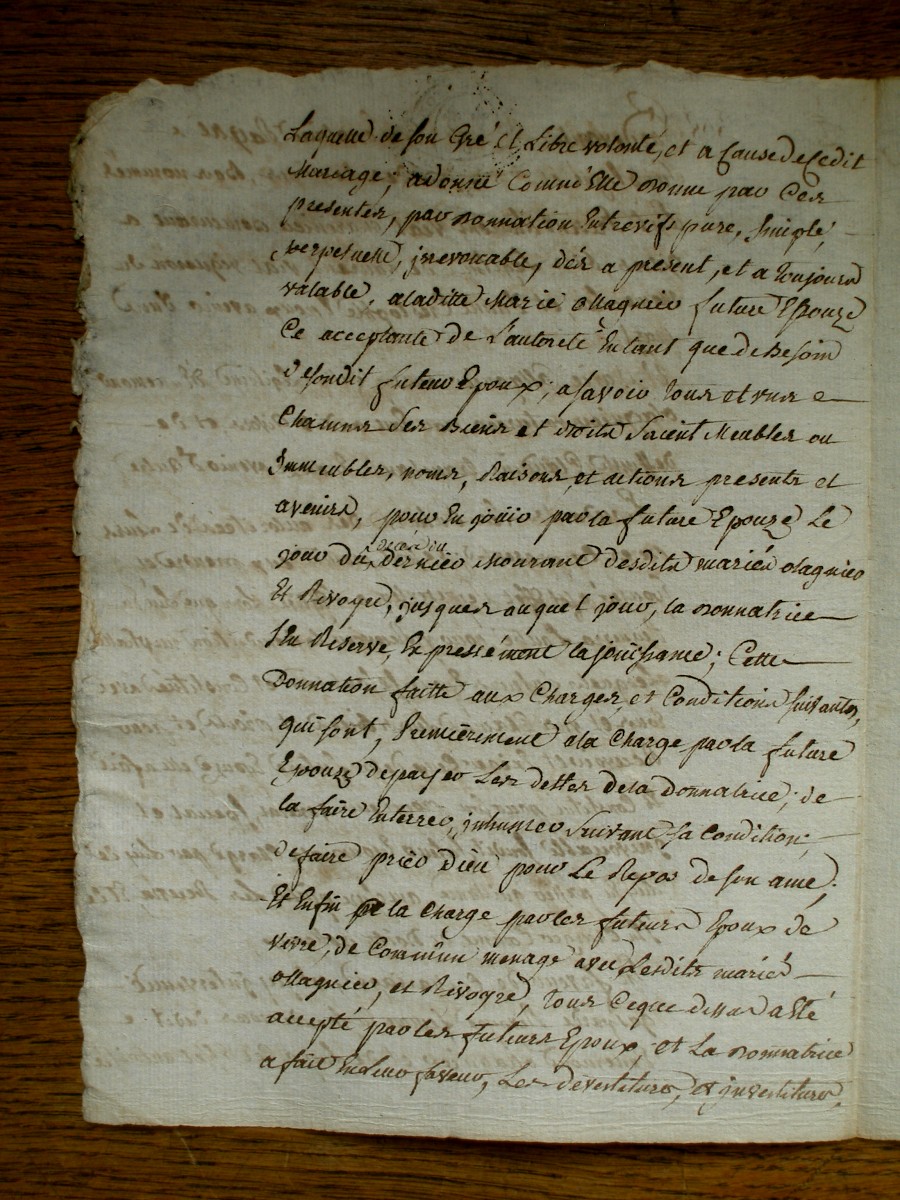 Laquelle de son Gré et Libre volonté, et a Cause de Cedit
Mariage, a donné Comm'Elle donne par Ces
presentes, par donnation Entrevifs pure, Simple,
perpetuelle, jrrevoquable, dés a present, et a toujours
valable, aladitte Marie Magnier future Epouze
Ce acceptante de L'autoreté Entant que de Besoin
desondit futeur Epoux; asavoir tous et uns
Chacuns Ses Biens et droits Soient Meubles ou
Jmmeubles, noms, Raisons, et actions presents et
avenirs, pour En joüir par la future Epouze Le
jour du decés du dernier Mourant desdits mariés Magnier
Et Rivoyre, jusques auquel jour, la donnatrice
S'En Reserve, Expressément la joüissance; Cette
Donnation faitte aux Charges, et Conditions suivantes,
qui sont, Premièrement ala Charge par la future
Epouze de payer Les dettes dela Donnatrice, de
la faire Enterrer, jnhumer Suivant sa Condition;
de faire prier Dieu pour Le Repos de Son ame;
Et Enfin a la Charge par les futeurs Epoux de
vivre, de Commûn menage avec Lesdits mariés
Magnier, et Rivoyre, tous Ceque dessus a Eté
accepté par les futeurs Epoux, et La donnatrice
a fait En Leur faveur, Les devestitures, et jnvestitures.